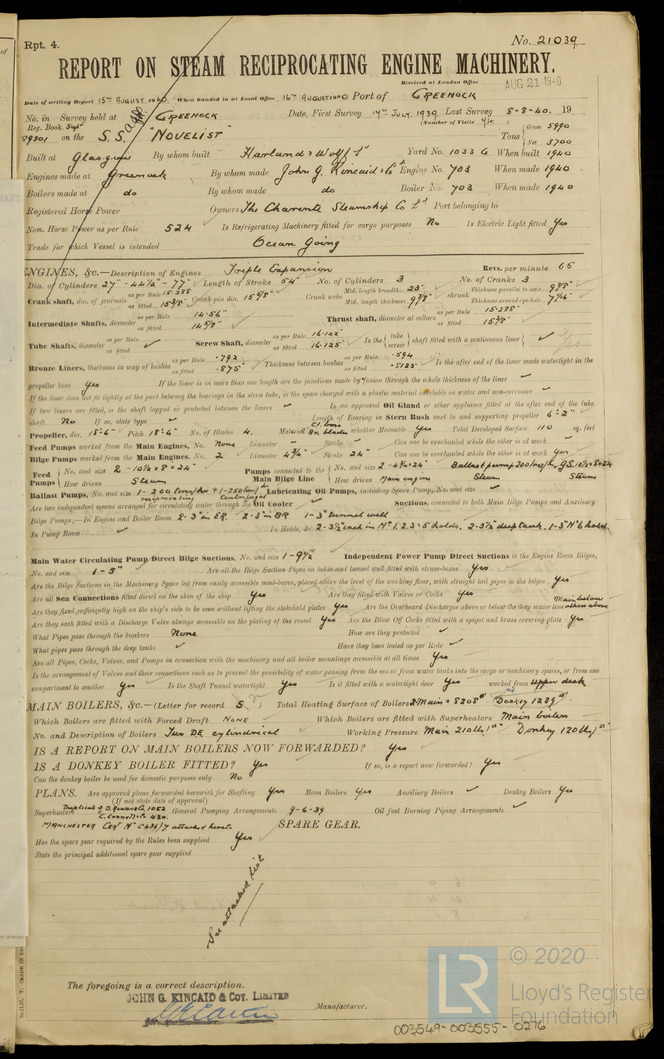 Rpt. 4.
No. 21039
REPORT ON STEAM RECIPROCATING ENGINE MACHINERY.
Received at London Office AUG 21 1940
Date of writing Report 15TH AUGUST 1940 When handed in at Local Office 16TH AUGUST 1940 Port of GREENOCK
No. in Survey held at GREENOCK Date, First Survey 14TH JULY 1939 Last Survey 8-8-40. 19
Reg. Book. (Number of Visits
on the S.S. "NOVELIST" Tons Gross 5990 Net 3700
Built at Glasgow By whom built Harland & Wolff Ld Yard No. 1033 G When built 1940
Engines made at Greenock By whom made John G. Kincaid & Co Ld Engine No. 703 When made 1940
Boilers made at do By whom made do Boiler No. 703 When made 1940
Registered Horse Power Owners The Charente Steamship Co Ld Port belonging to
Nom. Horse Power as per Rule 524 Is Refrigerating Machinery fitted for cargo purposes No Is Electric Light fitted Yes
Trade for which Vessel is intended Ocean Going
ENGINES, &c.—Description of Engines Triple Expansion Revs. per minute 65
Dia. of Cylinders 27" - 44½" - 77" Length of Stroke 54" No. of Cylinders 3 No. of Cranks 3
Crank shaft, dia. of journals as per Rule 15.388 as fitted 15⅝" Crank pin dia. 15⅝" Crank webs Mid. length breadth 25" Mid. length thickness 9⅝" shrunk Thickness parallel to axis 9⅝" Thickness around eye-hole
Intermediate Shafts, diameter as per Rule 14.56" as fitted 14⅝" Thrust shaft, diameter at collars as per Rule 15.288" as fitted 15⅜"
Tube Shafts, diameter as per Rule as fitted Screw Shaft, diameter as per Rule 16.102" as fitted 16.125" Is the tube screw shaft fitted with a continuous liner
Bronze Liners, thickness in way of bushes as per Rule .792 as fitted .875" Thickness between bushes as per Rule .594 as fitted Is the after end of the liner made watertight in the
propeller boss Yes If the liner is in more than one length are the junctions made by fusion through the whole thickness of the liner
If the liner does not fit tightly at the part between the bearings in the stern tube, is the space charged with a plastic material insoluble in water and non-corrosive
If two liners are fitted, is the shaft lapped or protected between the liners Is an approved Oil Gland or other appliance fitted at the after end of the tube
shaft No If so, state type Length of Bearing in Stern Bush next to and supporting propeller 6'-2"
Propeller, dia. 18'-6" Pitch 18'-6" No. of Blades 4 Material whether Moveable Yes Total Developed Surface 110 sq. feet
Feed Pumps worked from the Main Engines, No. None Diameter Stroke Can one be overhauled while the other is at work
Bilge Pumps worked from the Main Engines, No. 2 Diameter 4¾" Stroke 24" Can one be overhauled while the other is at work Yes
Feed Pumps No. and size 2 - 10½ x 8 x 24" Pumps connected to the Main Bilge Line No. and size 2 - 4¾ x 24" Ballast pump 200 tons/hr, G.S. 10½ x 8 x 24
How driven Steam How driven Main engine Steam Steam
Ballast Pumps, No. and size 1 - 200 tons/hr reciprocating Centrifugal Lubricating Oil Pumps, including Spare Pump, No. and size
Are two independent means arranged for circulating water through the Oil Cooler Suctions, connected to both Main Bilge Pumps and Auxiliary
Bilge Pumps;—In Engine and Boiler Room 2-3" in ER 2-3" in BR 1-3" tunnel well
In Pump Room In Holds, &c. 2-3½" each in No 1, 2, 3 & 5 holds. 2-3½" deep tank. 1-3" No 6 hold
Main Water Circulating Pump Direct Bilge Suctions, No. and size 1-9½" Independent Power Pump Direct Suctions to the Engine Room Bilges,
No. and size 1-5" Are all the Bilge Suction Pipes in holds and tunnel well fitted with strum-boxes Yes
Are the Bilge Suctions in the Machinery Space led from easily accessible mud-boxes, placed above the level of the working floor, with straight tail pipes to the bilges Yes
Are all Sea Connections fitted direct on the skin of the ship Yes Are they fitted with Valves or Cocks Yes
Are they fixed sufficiently high on the ship's side to be seen without lifting the stokehold plates Yes Are the Overboard Discharges above or below the deep water line Main below others above
Are they each fitted with a Discharge Valve always accessible on the plating of the vessel Yes Are the Blow Off Cocks fitted with a spigot and brass covering plate Yes
What Pipes pass through the bunkers None How are they protected
What pipes pass through the deep tanks Have they been tested as per Rule
Are all Pipes, Cocks, Valves, and Pumps in connection with the machinery and all boiler mountings accessible at all times Yes
Is the arrangement of Valves and their connections such as to prevent the possibility of water passing from the sea or from water tanks into the cargo or machinery spaces, or from one
compartment to another Yes Is the Shaft Tunnel watertight Yes Is it fitted with a watertight door Yes worked from Upper deck
MAIN BOILERS, &c.—(Letter for record S) Total Heating Surface of Boilers 2 Main = 8208 sq ft Donkey 1289 sq ft
Which Boilers are fitted with Forced Draft NONE Which Boilers are fitted with Superheaters Main boilers
No. and Description of Boilers Two DE cylindrical Working Pressure Main 210 lbs/sq in Donkey 120 lbs/sq in
IS A REPORT ON MAIN BOILERS NOW FORWARDED? Yes
IS A DONKEY BOILER FITTED? Yes If so, is a report now forwarded? Yes
Can the donkey boiler be used for domestic purposes only No
PLANS. Are approved plans forwarded herewith for Shafting Yes Main Boilers Yes Auxiliary Boilers Donkey Boilers Yes
(If not state date of approval)
Superheaters General Pumping Arrangements 9-6-39 Oil fuel Burning Piping Arrangements
MANCHESTER Cert No C636/7 attached hereto.
SPARE GEAR.
Has the spare gear required by the Rules been supplied Yes
State the principal additional spare gear supplied
See attached list
The foregoing is a correct description,
JOHN G. KINCAID & COY. LIMITED
Manufacturer.
© 2020
LR
Lloyd's Register
Foundation
003549-003555-0276